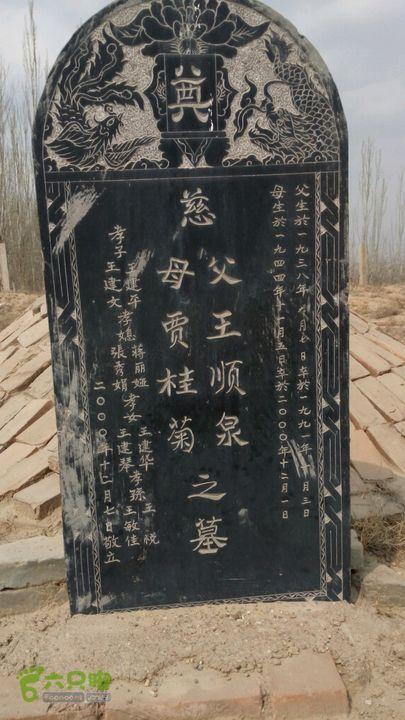 奠
父生於一九三八年月日卒於一九九一年月三日
母生於一九四四年月五日卒於二000年十二月一日
慈父王顺泉
母贾桂菊
之墓
孝子王建平
王建文
孝媳蒋丽娅
張秀娟
孝女王建华
王建琴
孝孫王悦
王敏佳
二000年十二月七日敬立
六只脚